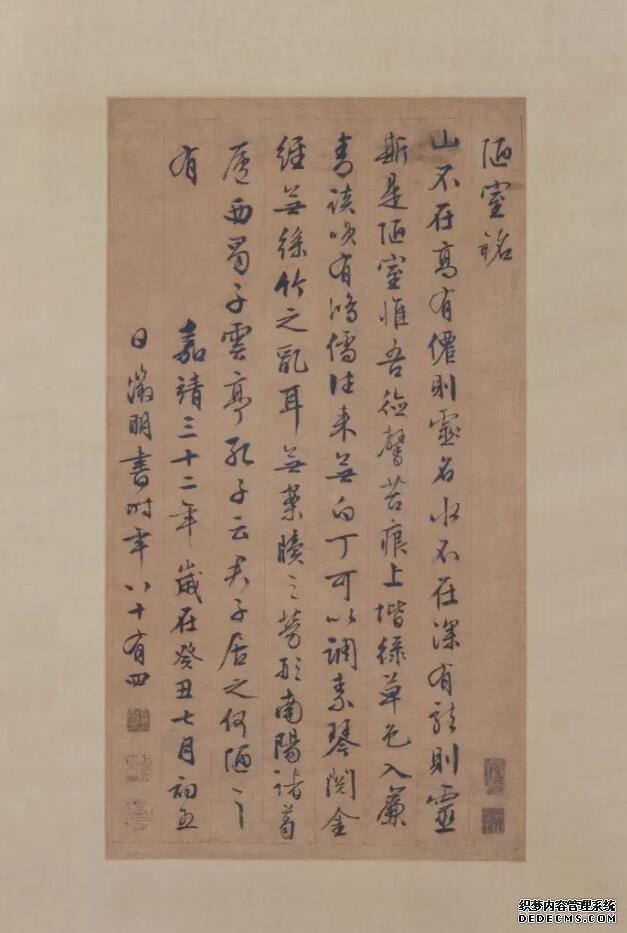 陋室銘
山不在高有僊則靈名水不在深有龍則靈
斯是陋室惟吾德馨苔痕上堦綠草色入簾
青談咲有鴻儒往来無白丁可以調素琴閱金
經無絲竹之亂耳無案牘之勞形南陽諸葛
廬西蜀子雲亭孔子云君子居之何陋之
有 嘉靖三十二年歲在癸丑七月初五
日徵明書時年八十有四
织梦内容管理系统
DEDECMS.COM